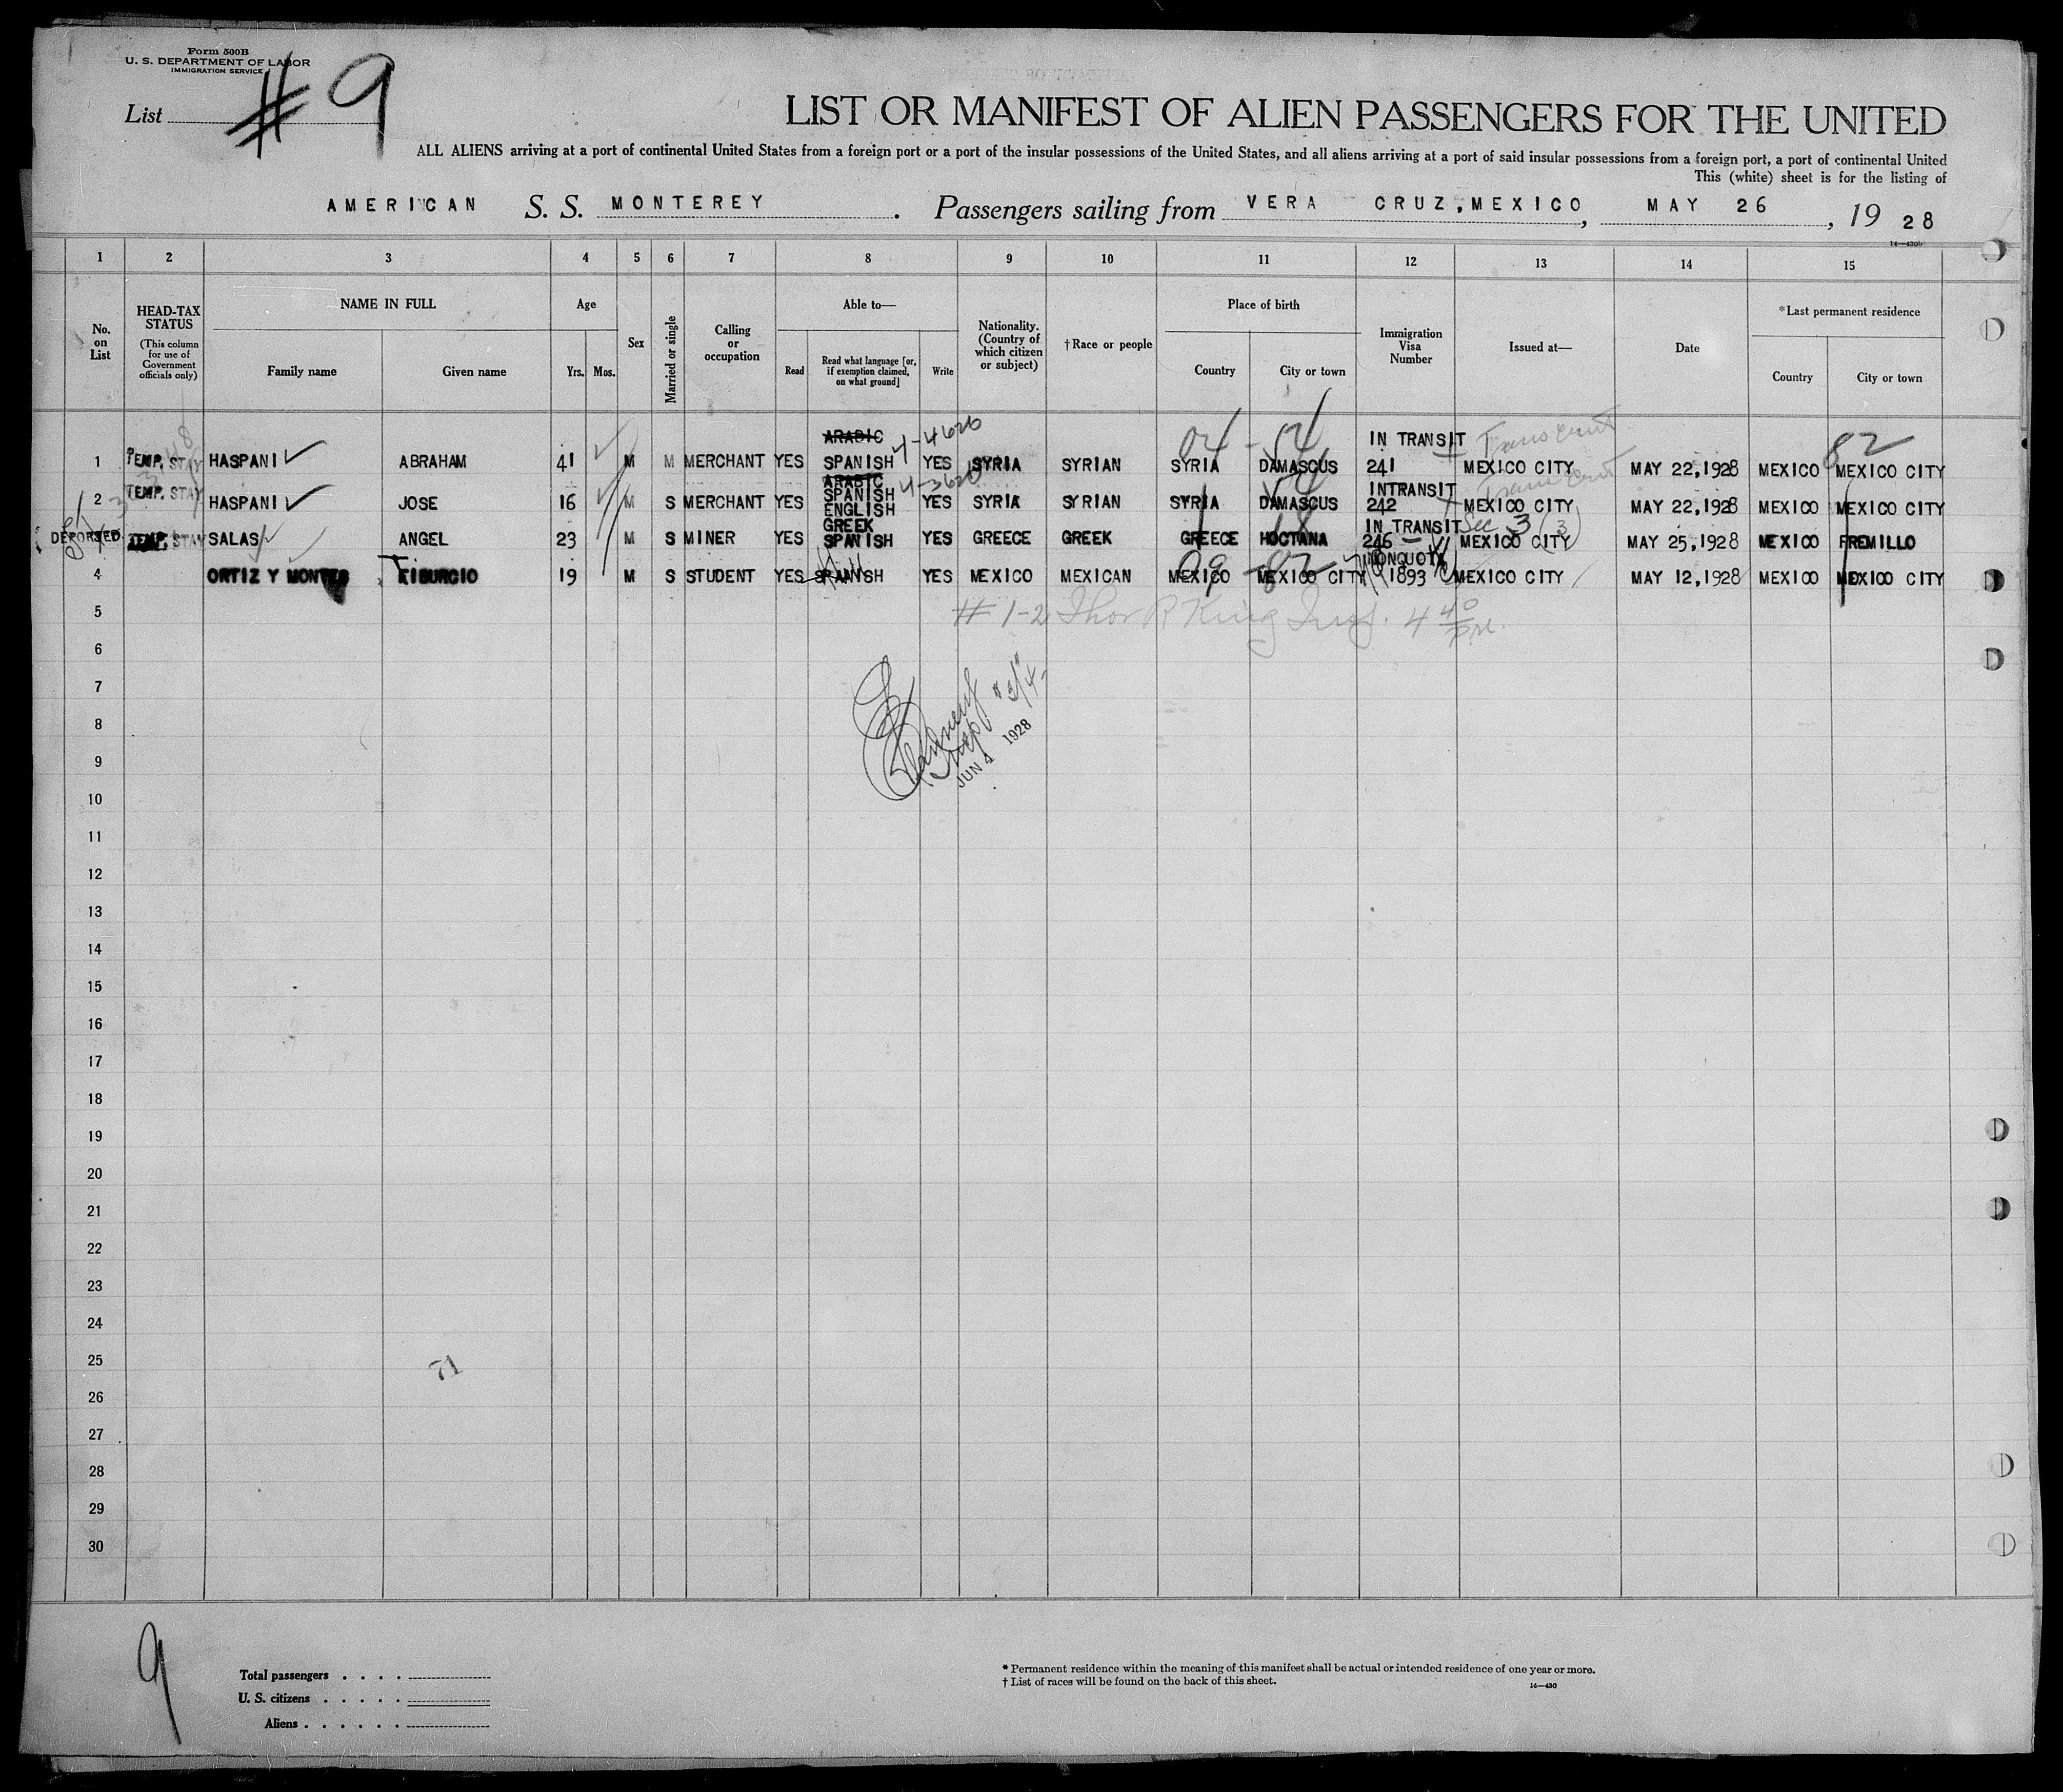 Form 500B
U. S. DEPARTMENT OF LABOR
IMMIGRATION SERVICE
List # 9
LIST OR MANIFEST OF ALIEN PASSENGERS FOR THE UNITED
ALL ALIENS arriving at a port of continental United States from a foreign port or a port of the insular possessions of the United States, and all aliens arriving at a port of said insular possessions from a foreign port, a port of continental United
This (white) sheet is for the listing of
AMERICAN S. S. MONTEREY. Passengers sailing from VERA CRUZ, MEXICO, MAY 26, 19 28
14—430b
1 2 3 4 5 6 7 8 9 10 11 12 13 14 15
No. on List
HEAD-TAX STATUS
(This column for use of Government officials only)
NAME IN FULL
Family name Given name
Age
Yrs. Mos.
Sex
Married or single
Calling or occupation
Able to—
Read
Read what language [or, if exemption claimed, on what ground]
Write
Nationality. (Country of which citizen or subject)
†Race or people
Place of birth
Country City or town
Immigration Visa Number
Issued at—
Date
*Last permanent residence
Country City or town
04 - 54 82
ARABIC 4-4620 IN TRANSIT
1 TEMP. STAY HASPANI ABRAHAM 41 M M MERCHANT YES SPANISH YES SYRIA SYRIAN SYRIA DAMASCUS 241 MEXICO CITY MAY 22,1928 MEXICO MEXICO CITY
ARABIC 4-3620 INTRANSIT
2 TEMP. STAY HASPANI JOSE 16 M S MERCHANT YES SPANISH ENGLISH YES SYRIA SYRIAN SYRIA DAMASCUS 242 MEXICO CITY MAY 22,1928 MEXICO MEXICO CITY
GREEK IN TRANSIT Sec 3 (3)
DEPORTED TEMP. STAY SALAS ANGEL 23 M S MINER YES SPANISH YES GREECE GREEK GREECE HOCTANA 246 MEXICO CITY MAY 25,1928 MEXICO FREMILLO
NONQUOTA
4 ORTIZ Y MONTES TIBURCIO 19 M S STUDENT YES SPANISH YES MEXICO MEXICAN MEXICO MEXICO CITY 1893 MEXICO CITY MAY 12,1928 MEXICO MEXICO CITY
5
# 1-2 Thor R King Insp. 4 40 PM.
6
7
8
JUN 4 1928
9
10
11
12
13
14
15
16
17
18
19
20
21
22
23
24
25
71
26
27
28
29
30
9
Total passengers
U. S. citizens
Aliens
* Permanent residence within the meaning of this manifest shall be actual or intended residence of one year or more.
† List of races will be found on the back of this sheet.
14—430